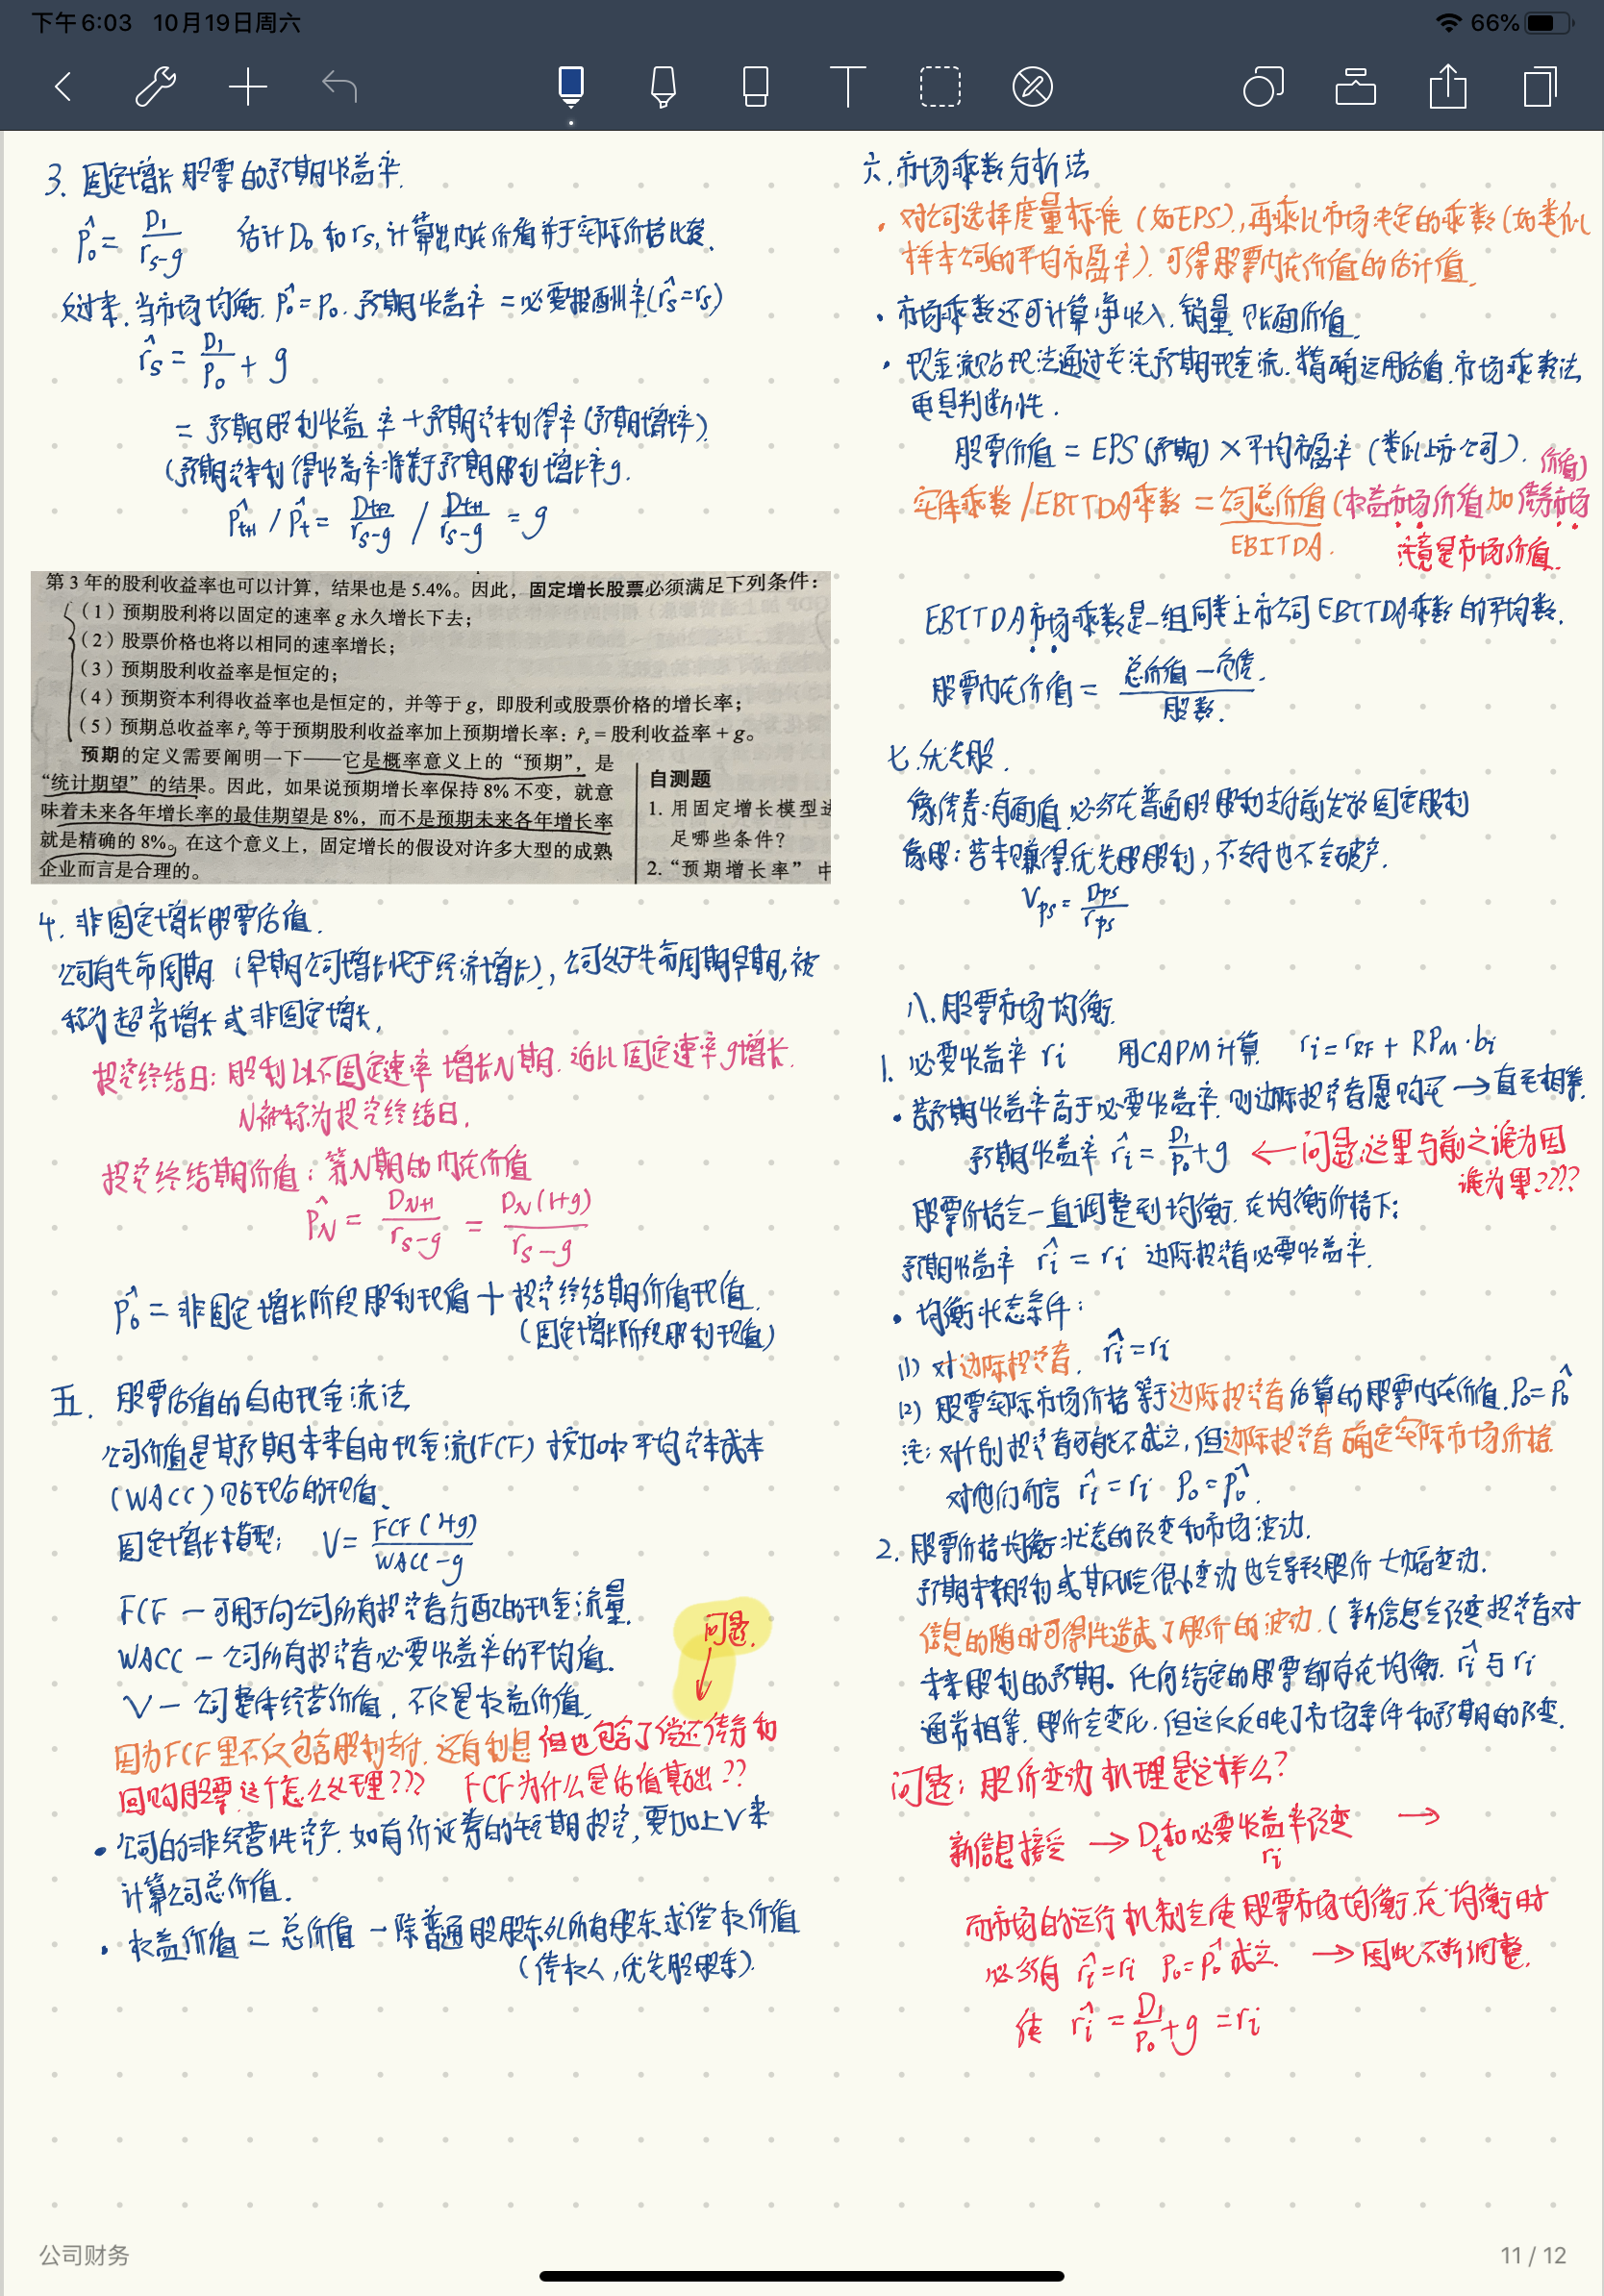 下午6:03 10月19日周六
66%
3. 固定增长股票的预期收益率.
P̂₀ = D₁/(rs-g) 估计D₀和rs,计算出内在价值并于实际价格比较.
反过来.当市场均衡. P̂₀=P₀. 预期收益率 = 必要报酬率(r̂s=rs)
r̂s = D₁/P₀ + g
= 预期股利收益率+预期资本利得率(预期增长率).
(预期资本利得收益率将等于预期股利增长率g.
P̂t+1 / P̂t = Dt+2/(rs-g) / Dt+1/(rs-g) = g
第 3 年的股利收益率也可以计算,结果也是 5.4%。因此,固定增长股票必须满足下列条件:
(1)预期股利将以固定的速率 g 永久增长下去;
(2)股票价格也将以相同的速率增长;
(3)预期股利收益率是恒定的;
(4)预期资本利得收益率也是恒定的,并等于 g,即股利或股票价格的增长率;
(5)预期总收益率 r̂s 等于预期股利收益率加上预期增长率:r̂s = 股利收益率 + g。
预期的定义需要阐明一下——它是概率意义上的“预期”,是
“统计期望”的结果。因此,如果说预期增长率保持 8% 不变,就意
味着未来各年增长率的最佳期望是 8%,而不是预期未来各年增长率
就是精确的 8%。在这个意义上,固定增长的假设对许多大型的成熟
企业而言是合理的。
自测题
1. 用固定增长模型
足哪些条件?
2. “预期增长率”中
4. 非固定增长股票估值.
公司有生命周期.(早期公司增长快于经济增长),公司处于生命周期早期,被
称为超常增长或非固定增长.
投资终结日: 股利以不固定速率增长N期.后以固定速率g增长.
N被称为投资终结日.
投资终结期价值: 第N期的内在价值
P̂N = DN+1/(rs-g) = DN(1+g)/(rs-g)
P̂₀ = 非固定增长阶段股利现值 + 投资终结期价值现值.
(固定增长阶段股利现值)
五. 股票估值的自由现金流法
公司价值是其预期未来自由现金流(FCF)按加权平均资本成本
(WACC)贴现后的现值.
固定增长模型: V = FCF(1+g)/(WACC-g)
FCF — 可用于向公司所有投资者分配的现金流量.
WACC — 公司所有投资者必要收益率的平均值.
V — 公司整体经营价值, 不仅是权益价值.
问题.
因为FCF里不仅包含股利支付.还有利息 但也包含了偿还债务和
回购股票.这个怎么处理??? FCF为什么是估值基础??
• 公司的非经营性资产.如有价证券的短期投资,要加上V来
计算公司总价值.
• 权益价值 = 总价值 — 除普通股股东外所有股东求偿权价值
(债权人,优先股股东).
六.市场乘数分析法
• 对公司选择度量标准(如EPS),再乘以市场决定的乘数(如类似
样本公司的平均市盈率).可得股票内在价值的估计值.
• 市场乘数还可计算净收入.销量.账面价值.
• 现金流贴现法通过关注预期现金流.精确运用估值.市场乘数法
更具判断性.
股票价值 = EPS(预期)×平均市盈率(类似上市公司).
实体乘数/EBITDA乘数 = 公司总价值(权益市场价值加债务市场价值)
EBITDA.
注意是市场价值.
EBITDA市场乘数是一组同类上市公司EBITDA乘数的平均数.
股票内在价值 = (总价值 — 负债)/股数.
七.优先股.
像债券:有面值.必须在普通股股利支付前发放固定股利
像股: 若未赚得优先股股利,不支付也不会破产.
Vps = Dps/rps
八.股票市场均衡.
1. 必要收益率 ri 用CAPM计算. ri = rRF + RPM·bi
• 若预期收益率高于必要收益率.则边际投资者愿购买 → 直至相等.
预期收益率 r̂i = D₁/P₀ + g ← 问题:这里与前之谁为因
谁为果????
股票价格会一直调整到均衡.在均衡价格下:
预期收益率 r̂i = ri 边际投资者必要收益率.
• 均衡状态条件:
(1) 对边际投资者. r̂i=ri
(2) 股票实际市场价格等于边际投资者估算的股票内在价值.P₀=P̂₀
注: 对个别投资者可能不成立,但边际投资者确定实际市场价格.
对他们而言 r̂i=ri P₀=P̂₀.
2. 股票价格均衡状态的改变和市场波动.
预期未来股利或其风险很小变动也会导致股价大幅变动.
信息的随时可得性造成了股价的波动.(新信息会改变投资者对
未来股利的预期. 任何给定的股票都存在均衡. r̂i 与 ri
通常相等.股价会变化.但这仅反映了市场条件和预期的改变.
问题: 股价变动机理是这样么?
新信息接受 → Dt和必要收益率ri改变 →
而市场的运行机制会使股票市场均衡.在均衡时
必须有 r̂i=ri P₀=P̂₀成立. → 因此不断调整.
使 r̂i = D₁/P₀ + g = ri
公司财务
11 / 12